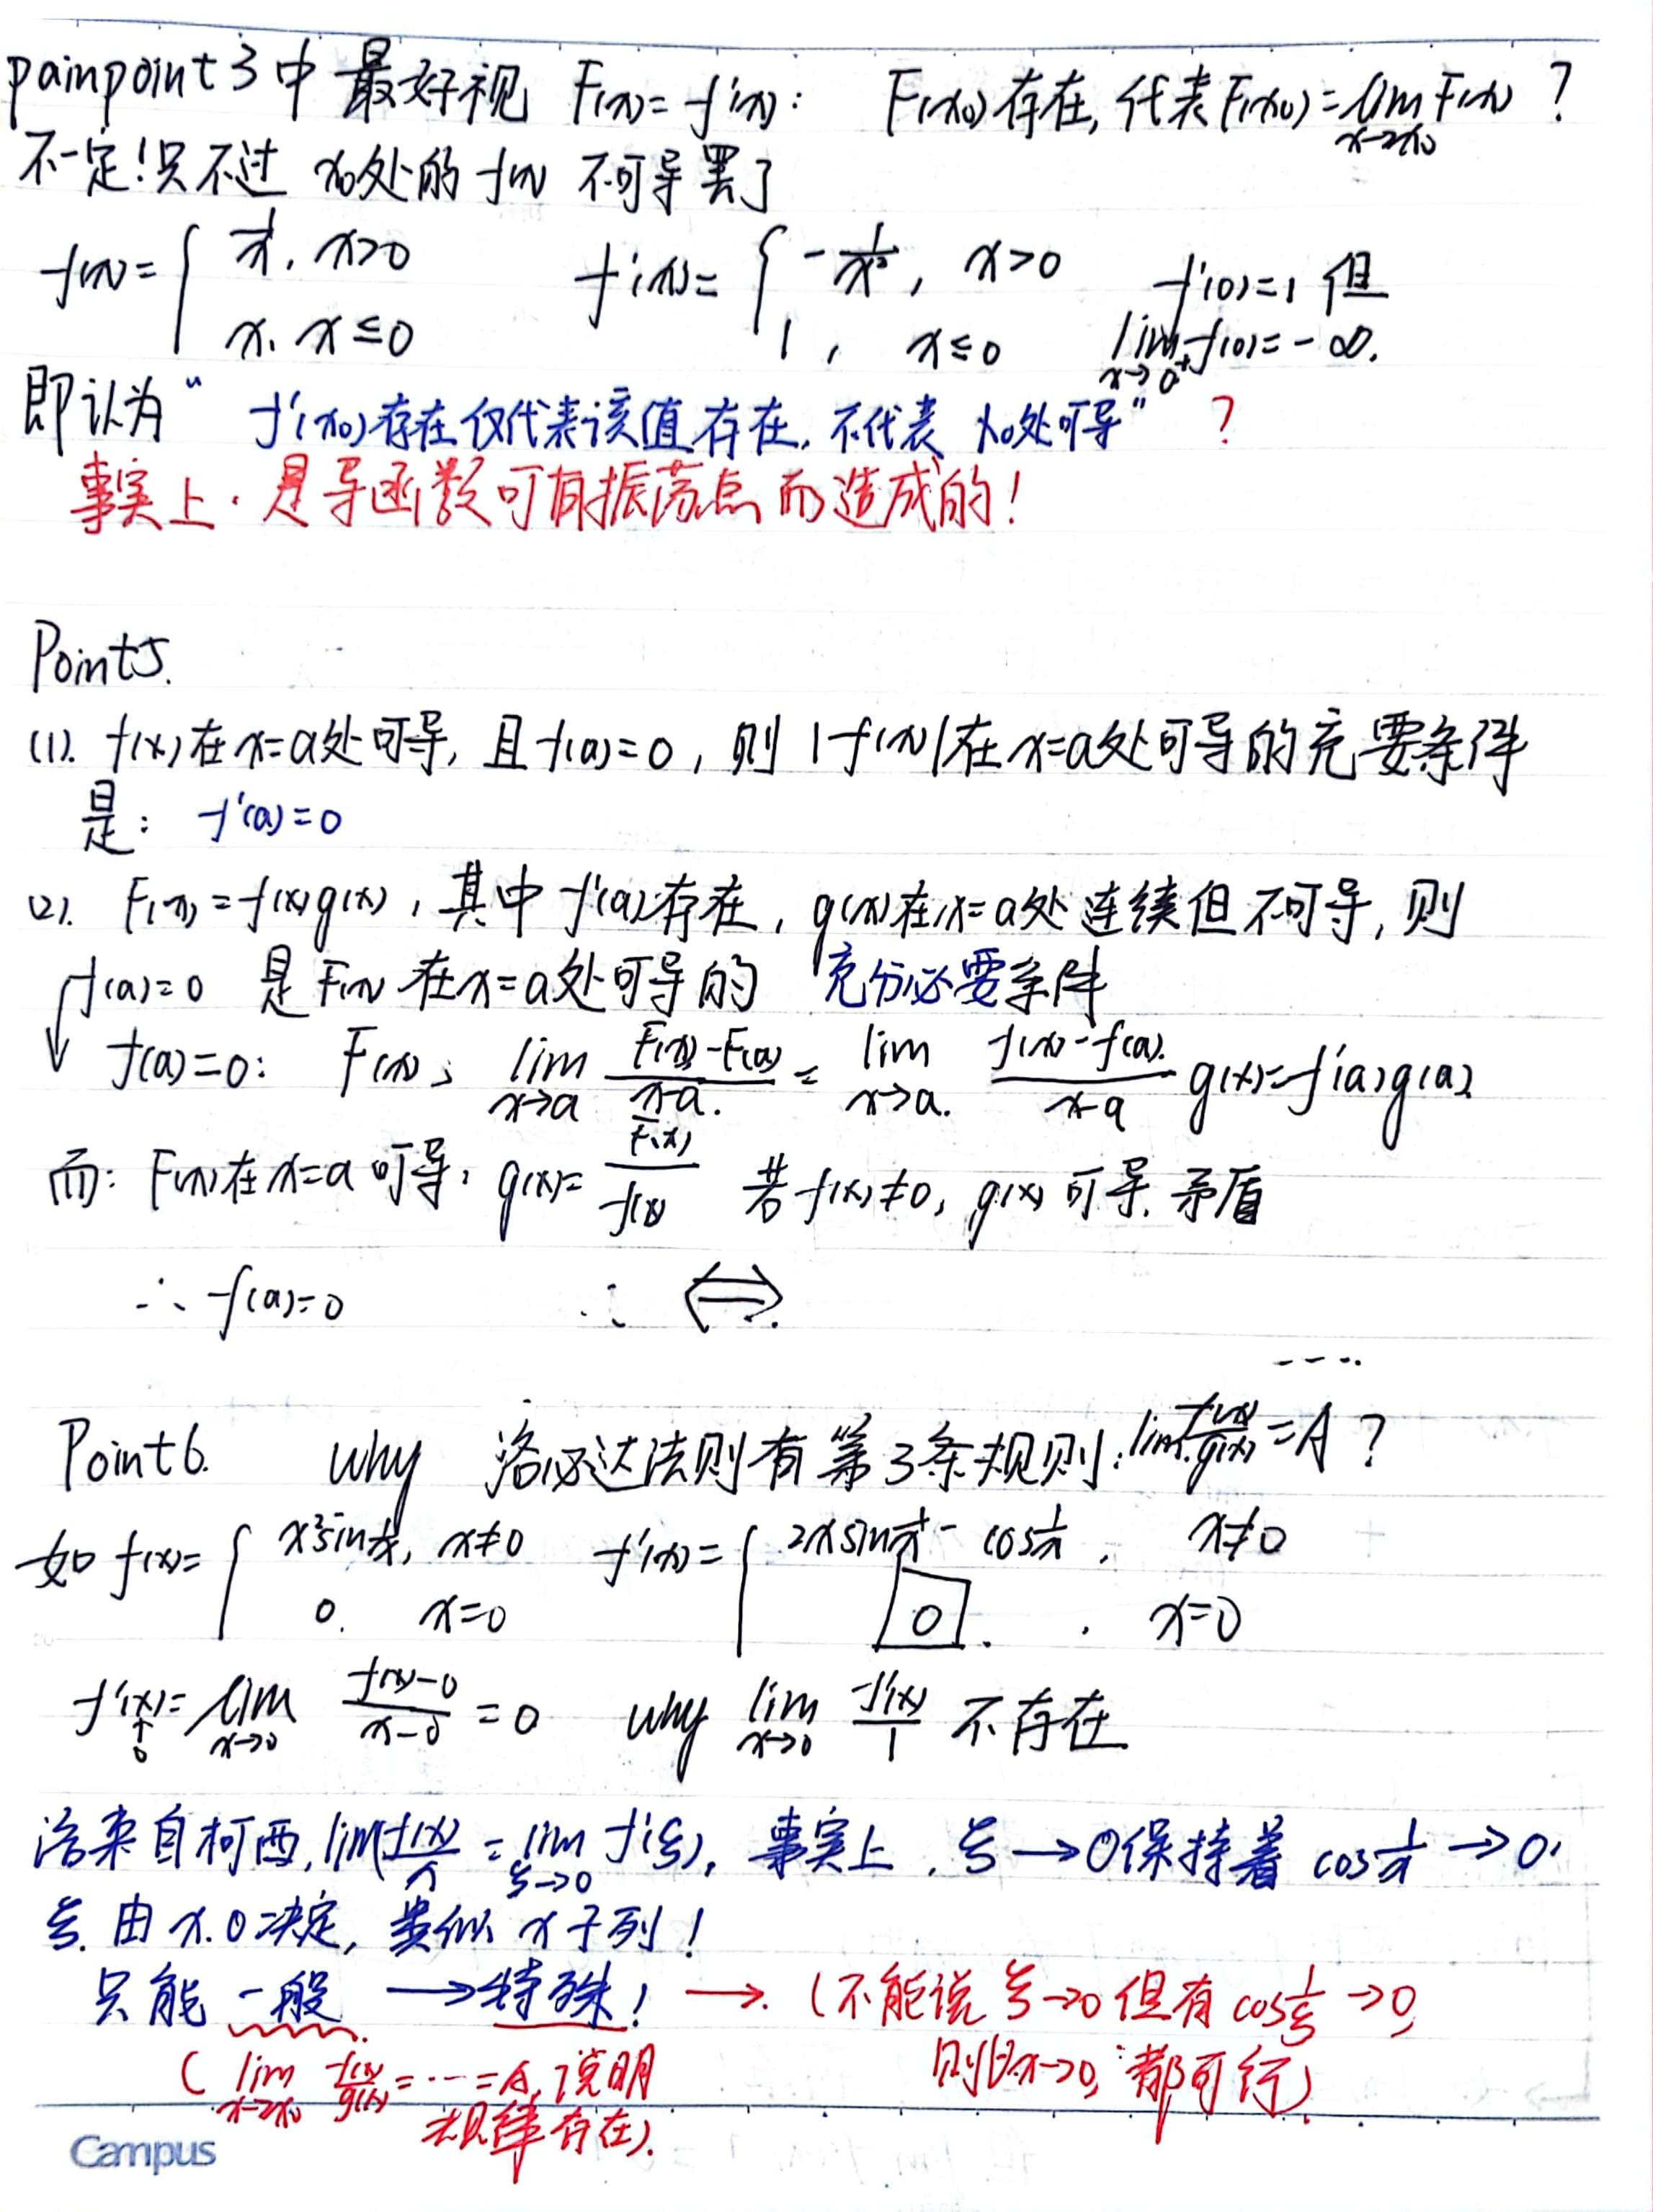 painpoint 3 中 最好视 F(x)=f'(x): F(x₀)存在, 代表F(x₀)=lim_{x→x₀}F(x) ?
不一定!只不过 x₀处的 f(x) 不可导罢了
f(x)={ 1/x, x>0 f'(x)={ -1/x², x>0 f'(0)=1 但
x, x≤0 1, x≤0 lim_{x→0⁺}f(0)=-∞.
即认为 “f'(x₀)存在仅代表该值存在, 不代表 x₀处可导” ?
事实上, 是导函数可有振荡点而造成的!
Point5.
(1). f(x)在x=a处可导, 且f(a)=0, 则 |f(x)|在x=a处可导的充要条件
是: f'(a)=0
(2). F(x)=f(x)g(x), 其中 f'(a)存在, g(x)在x=a处连续但不可导, 则
f(a)=0 是 F(x) 在x=a处可导的 充分必要条件
↓ f(a)=0: F(x), lim_{x→a} (F(x)-F(a))/(x-a) = lim_{x→a} (f(x)-f(a))/(x-a) g(x)=f'(a)g(a)
而: F(x)在x=a可导, g(x)=F(x)/f(x) 若f(x)≠0, g(x)可导. 矛盾
∴ f(a)=0 ∴ ⟺
----
Point6. why 洛必达法则有第3条规则: lim f'(x)/g'(x)=A ?
如 f(x)={ x²sin1/x, x≠0 f'(x)={ 2xsin1/x - cos1/x, x≠0
0. x=0 0. , x=0
f'(x)=lim_{x→0} (f(x)-0)/(x-0)=0 why lim_{x→0} f'(x)/1 不存在
↑
0
洛来自柯西, lim f(x)/x = lim_{ξ→0} f'(ξ), 事实上, ξ→0保持着 cos1/x→0.
ξ 由 x.0决定, 类似 x子列!
只能 一般 → 特殊! →. (不能说 ξ→0 但有 cos1/ξ→0,
则以x→0, 都可行).
( lim_{x→x₀} f(x)/g(x)=…=A, 说明
规律存在).
Campus